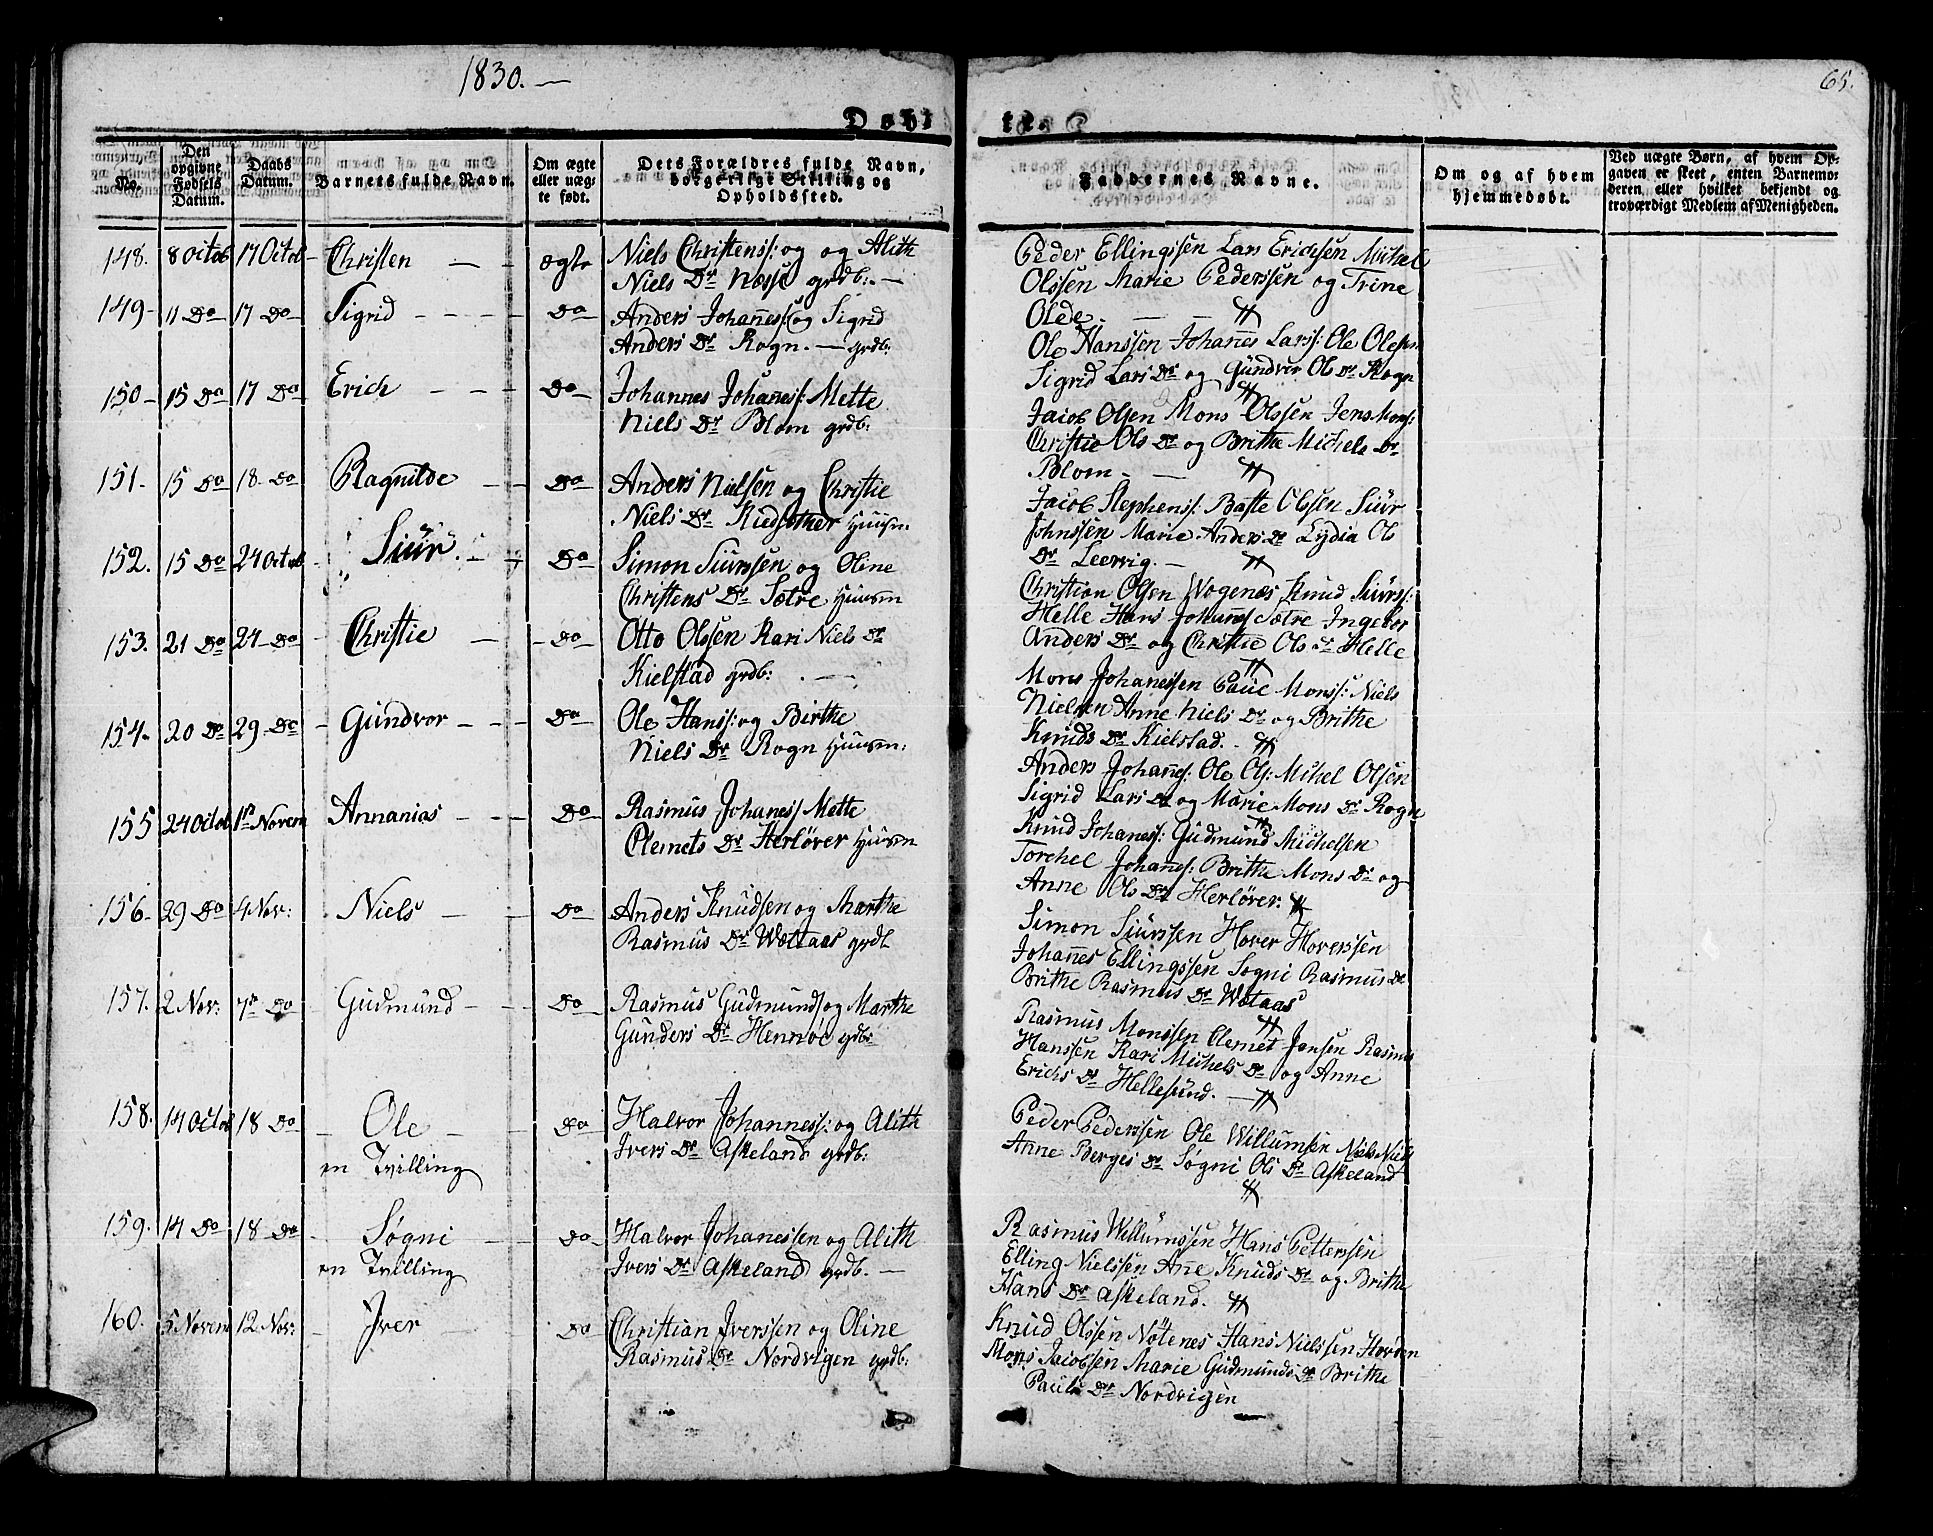 1830. —
65.
Døbte.
No.
Den opgivne Fødsels Datum.
Daabs Datum.
Barnets fulde Navn.
Om ægte eller uægte født.
Dets Forældres fulde Navn, borgerlige Stilling og Opholdssted.
Faddernes Navne.
Om og af hvem hjemmedøbt.
Ved uægte Børn, af hvem Opgaven er skeet, enten Barnemoderen eller hvilket bekjendt og troværdigt Medlem af Menigheden.
148. 8 Octob 17 Octob Christen ægte Niels Christenss: og og Alith
Niels Dr Næsse grdb:
Peder Ellingssen Lars Erichsen Michel
Olssen Marie Pederssen og Trine
Olde.
149 11 Do 17 Do Sigrid Do Anders Johañess og Sigrid
Anders Dr Rogn. — grdb:
Ole Hanssen Johañes Larss: Ole Olessen
Sigrid Lars Dr og Gundvor Ols Dr Rogn
150 15 Do 17 Do Erich Do Johannes Johaness: Mette
Niels Dr Blom grdb:
Jacob Olsen Mons Olssen Jens Monss:
Christie Ols Dr og Brithe Michels Dr
Blom
151. 15 Do 18 Do Ragnilde Do Anders Nielsen og Christie
Niels Dr Huusm:
Jacob Stephenss: Baste Olssen Siur
Johnssen Marie Anders Dr Lydia Ols
Dr Leervig.
152. 15 Do 24 Octob Siur. Do Simon Siurssen og Oline
Christens Dr Sætre Huusm
Christian Olsen Wogenæs Knud Siurss:
Helle Hans Johañess Sætre Ingebor
Anders Dr og Christie Ols Dr Helle
153. 21 Do 24 Do Christie Do Otto Olssen Kari Niels Dr
Kielstad grdb:
Mons Johanessen Poul Monss: Niels
Nielsen Anne Niels Dr og Brithe
Knuds Dr Kielstad.
154. 20 Do 29 Do Gundvor Do Ole Hanss: og Birthe
Niels Dr Rogn Huusm:
Anders Johañes: Ole Ols: Mikel Olsen
Sigrid Lars Dr og Marie Mons Dr Rogn
155 24 Octob 1st Novem Annanias Do Rasmus Johaness Mette
Clemets Dr Herløver Huusm
Knud Johaness: Gudmund Michelsen
Torchel Johañes: Brithe Mons Dr og
Anne Ols Dr Herløver.
156. 29 Do 4 Nov: Niels Do Anders Knudsen og Marthe
Rasmus Dr Wætaas grdb
Simon Siurssen Hover Hoverssen
Johañes Ellingssen Søgni Rasmus Dr
Brithe Rasmus Dr Wætaas
157. 2 Nov: 7de Do Gudmund Do Rasmus Gudmunds og Marthe
Gunders Dr Hennøe grdb:
Rasmus Monssen Clemet Jansen Rasmus
Hanssen Kari Michels Dr og Anne
Erichs Dr Hellesund.
158. 14 Octob 18 Do Ole Do Halvor Johanness: og Alith
en Tvilling Ivers Dr Askeland grdb:
Peder Pederssen Ole Willumsen Niels Niels
Anne Berges Dr Søgni Ols Dr Askeland
159. 14 Do 18 Do Søgni Do Halvor Johanessen og Alith
en Tvilling Ivers Dr Askeland grdb. —
Rasmus Willumssen Hans Petterssen
Elling Nielssen Añe Knuds Dr og Brithe
Hans Dr Askeland.
160. 5 Novem 12 Nov: Iver Do Christian Iverssen og Oline
Rasmus Dr Nordvigen grdb:
Knud Olssen Nøtenes Hans Nielssen Horden
Mons Jacobsen Marie Gudmunds Dr Brithe
Pauls Dr Nordvigen